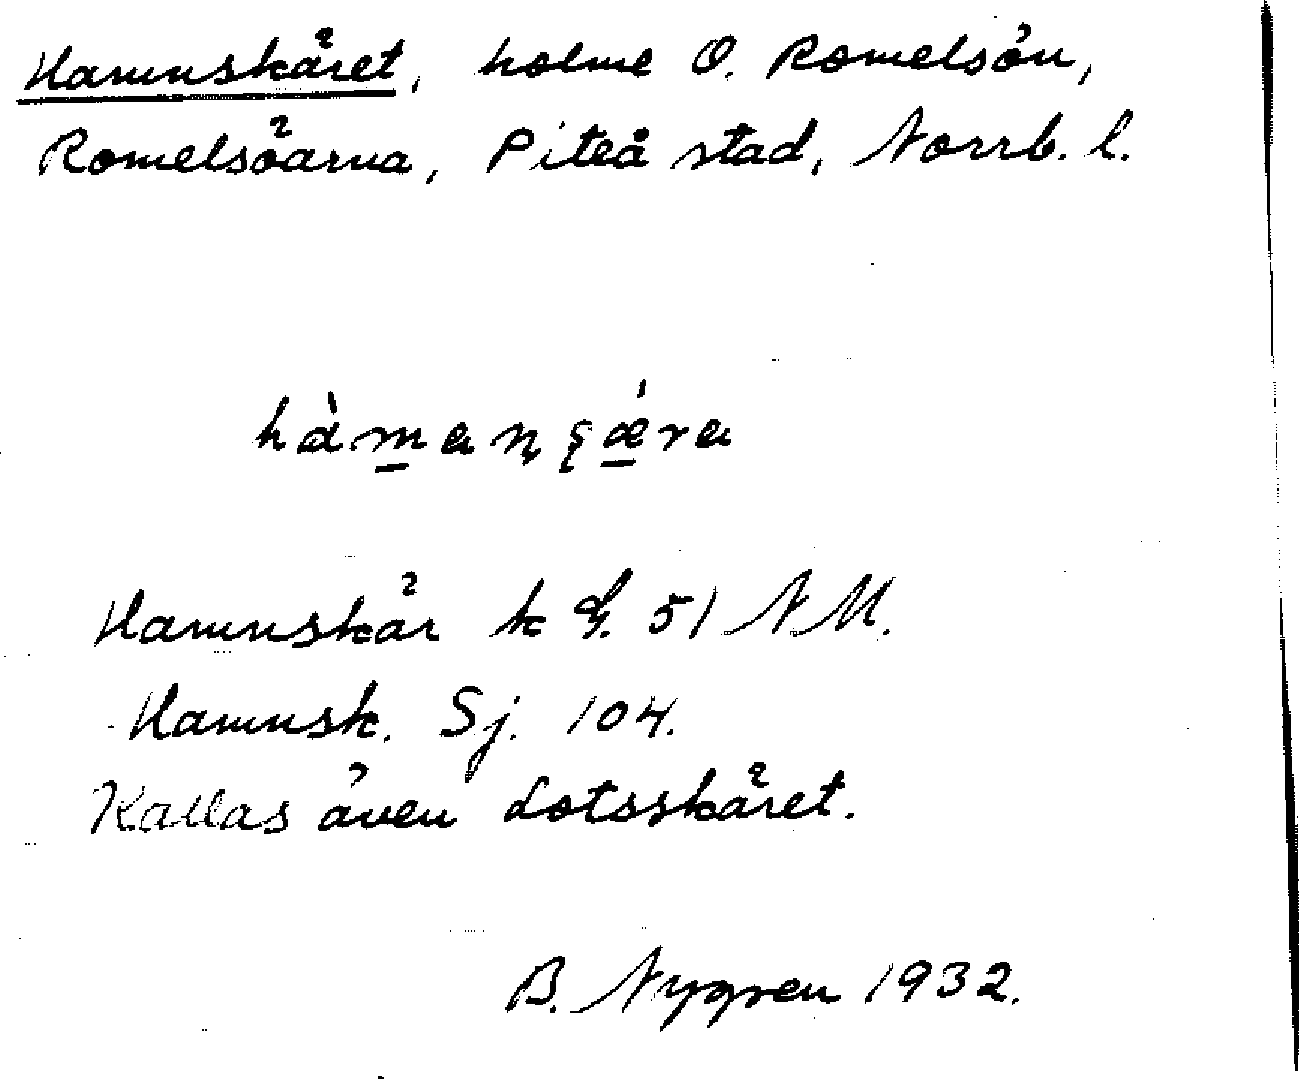 Hamnskäret, holme O. Romelsön,
Romelsöarna, Piteå stad, Norrb. l.
hàmanʂǽra
Hamnskär k G. 51 NM.
Hamnsk. Sj. 104.
Kallas även Lotsskäret.
B. Nygren 1932.